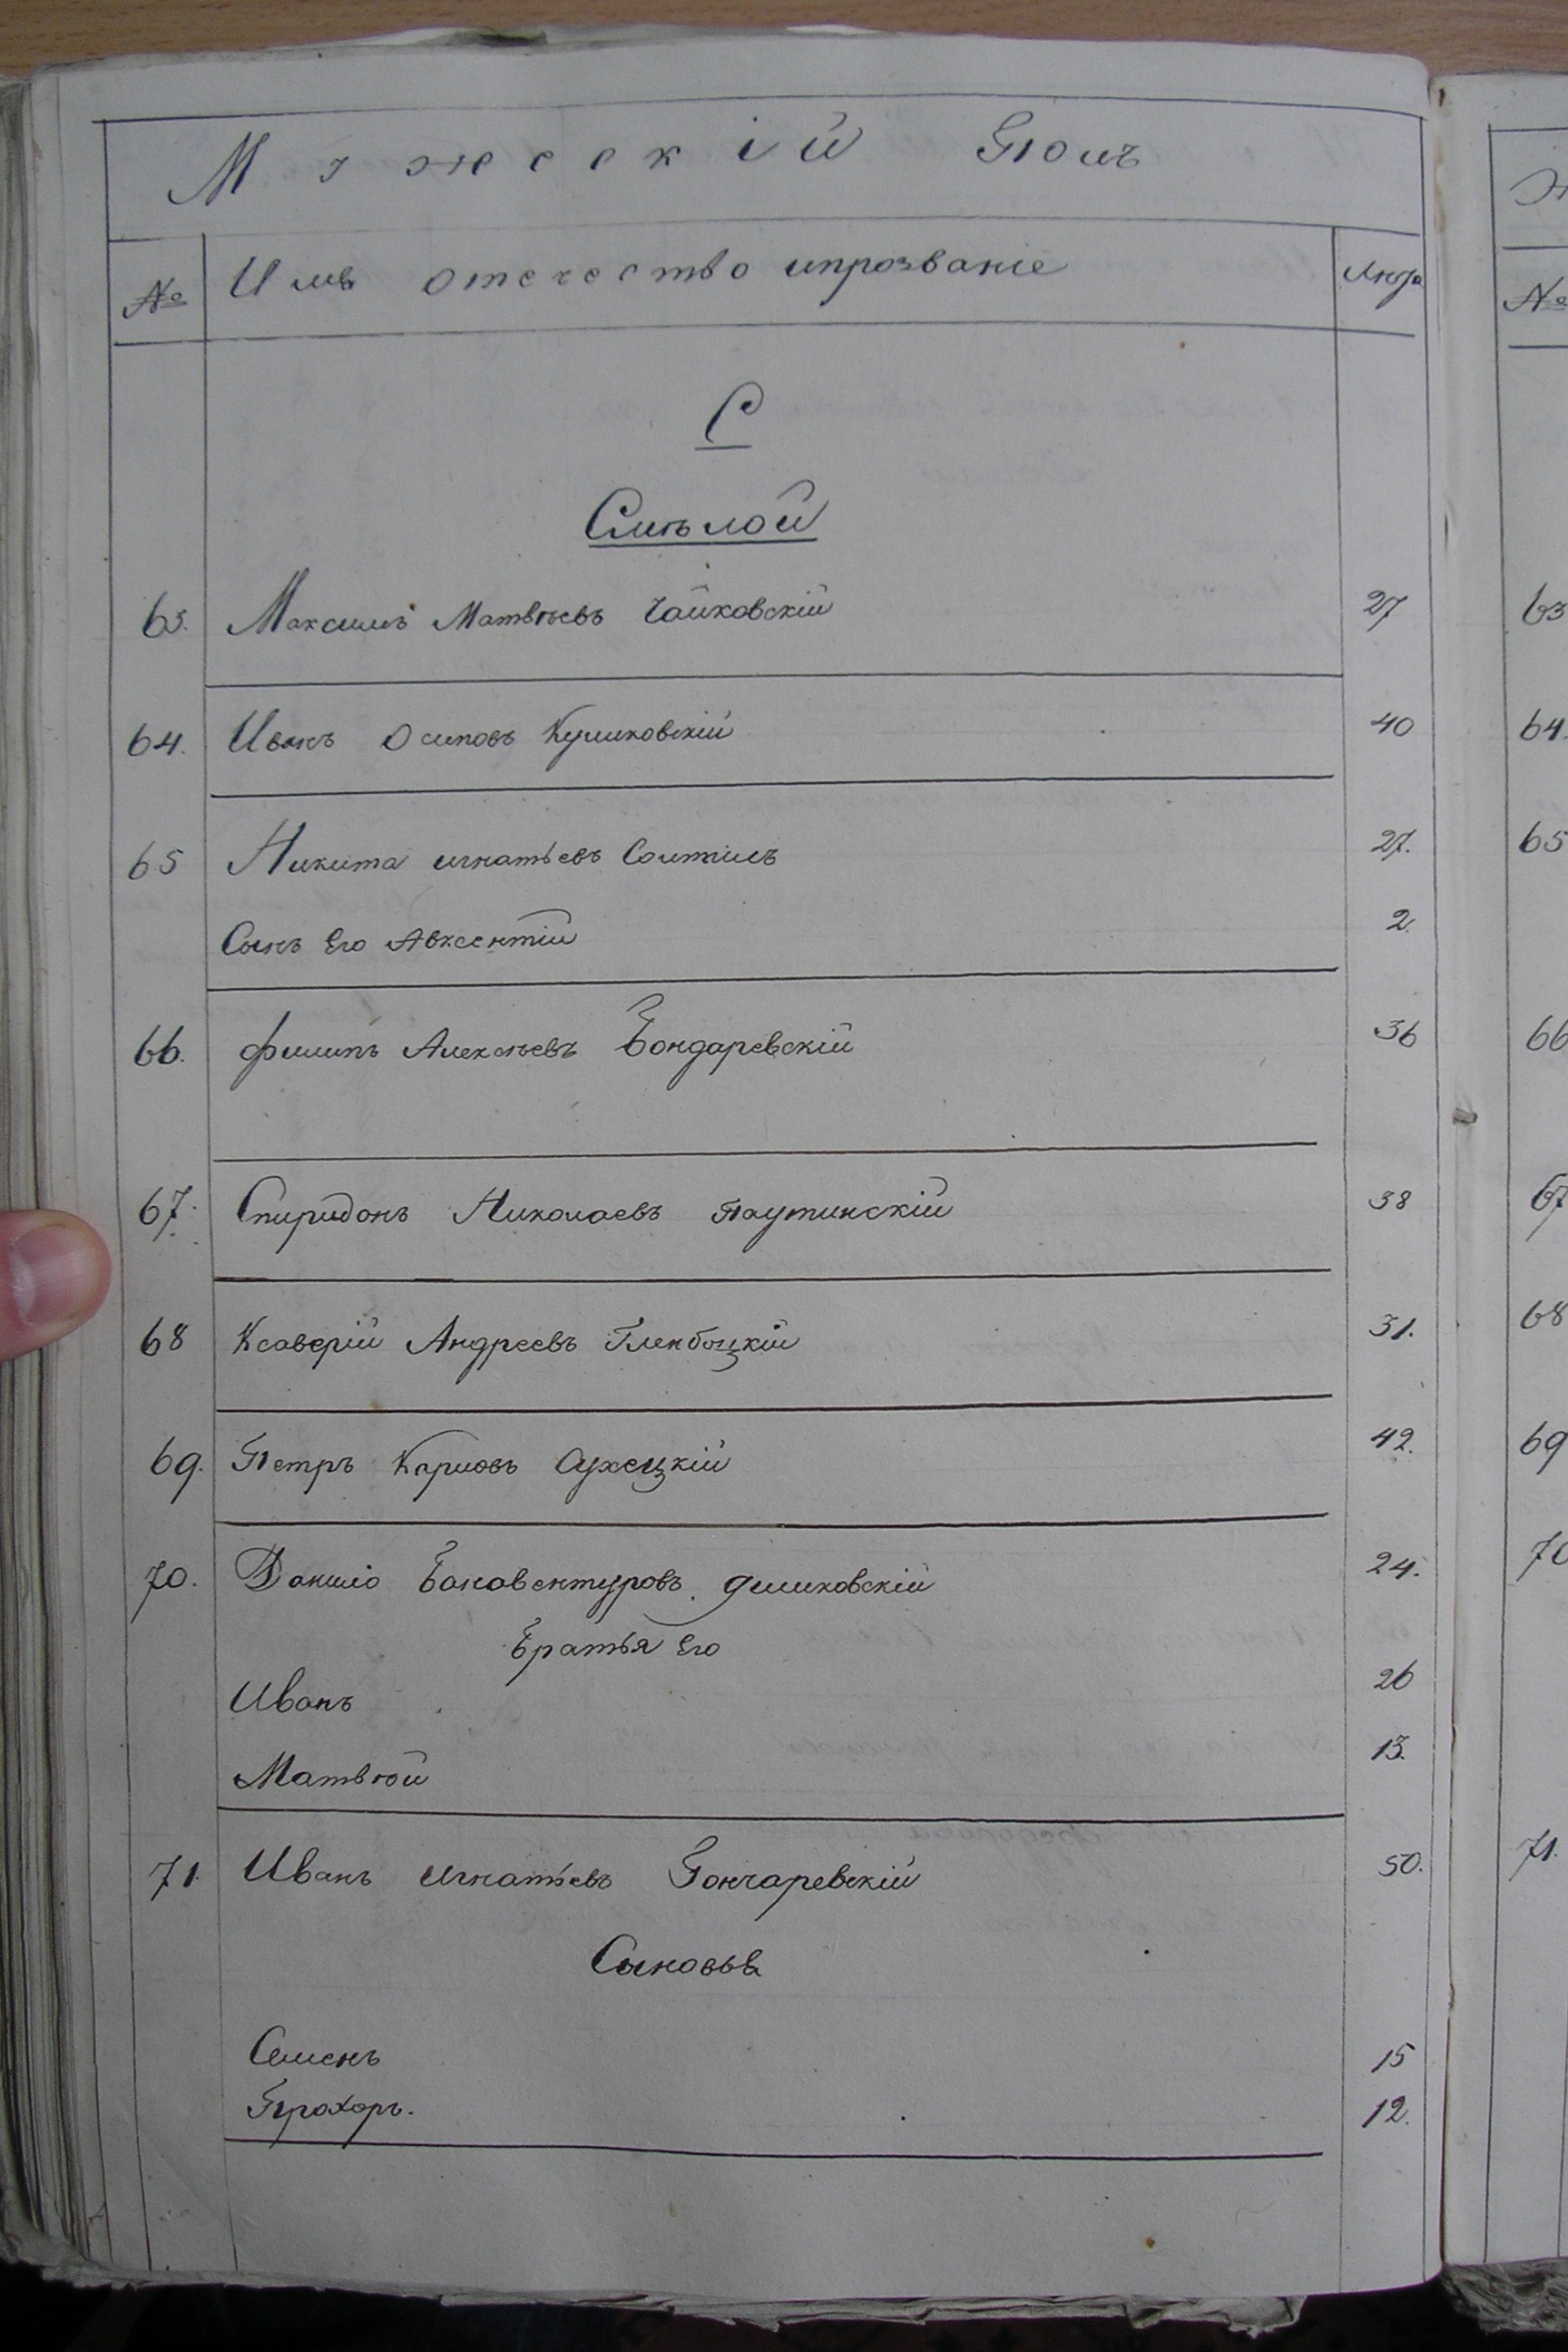 Мужескій Полъ
№ Имя отечество ипрозваніе Лѣта
С
Смѣлой
63. Максимъ Матвѣевъ Чайковскій 27
64. Иванъ Осиповъ Кулиховскій 40
65 Никита игнатьевъ 27.
Сынъ Его Авксентій 2.
66. Филипъ Алексѣевъ Бондаревскій 36
67. Спиридонъ Николаевъ Паутинскій 38
68 Ксаверій Андреевъ Гленбоцкій 31.
69. Петръ Карповъ Сухецкій 42.
70. Данило Бонавентуровъ 24.
Братья Его
Иванъ 26
Матвѣй 13.
71. Иванъ игнатьевъ Гончаревскій 50.
Сыновья
Семенъ 15
Прохоръ. 12.
№
63
64.
65
66
67
68
69
70
71.